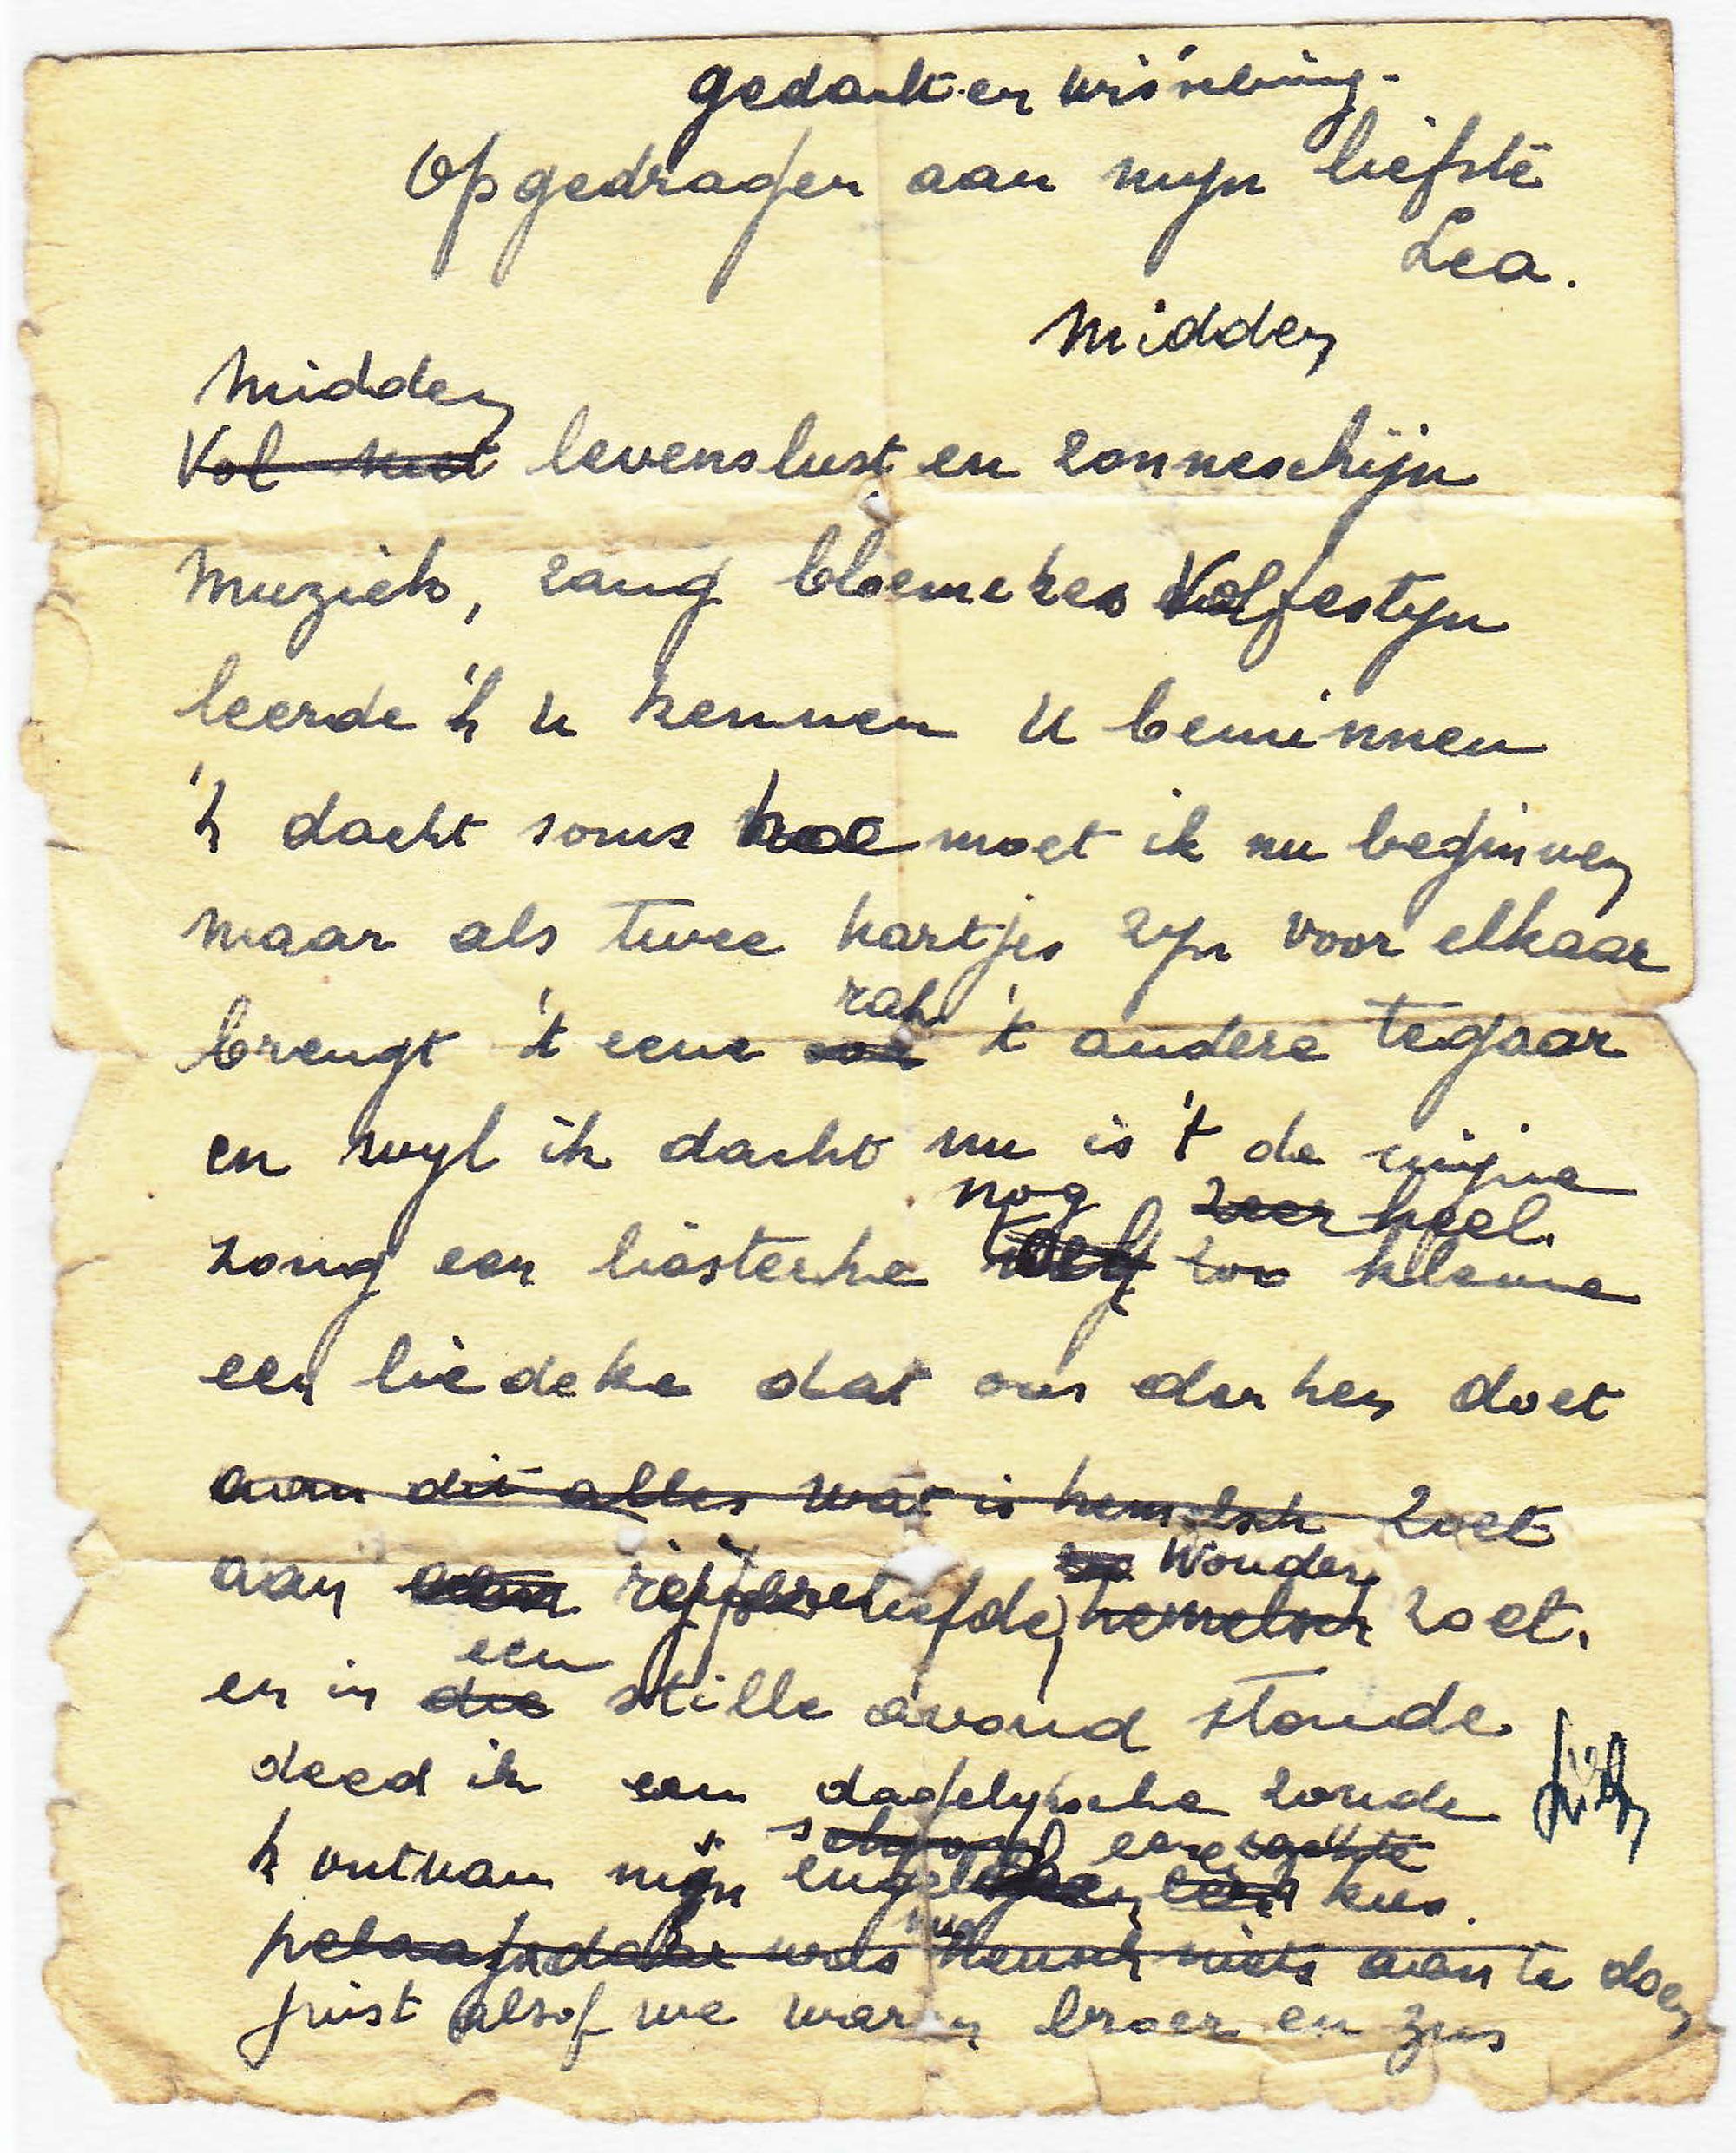 gedachtenwisseling.
Opgedragen aan mijn liefste
Lea.
Midden
Midden
Vol met levenslust en zonneschijn
Muziek, zang bloemekes Vol festijn
leerde 'k u kennen u beminnen
'k dacht soms hoe moet ik nu beginnen
maar als twee hartjes zijn voor elkaar
rah
brengt 't eene 't andere tegaar
en wijl ik dacht nu is 't de mijne
nog zeer heel
zong een liesterke zoo kleine
een liedeke dat ons denken doet
aan dit alles wat is hemelsch zoet
Wonder
aan een liefde, hemelsch zoet.
een
en in die stille avond stonde
deed ik een dagelijksche zonde
schoon
'k ontvam mijn een kus.
nu
helaas daar was heusch niets aan te doen
juist alsof we waren broer en zus